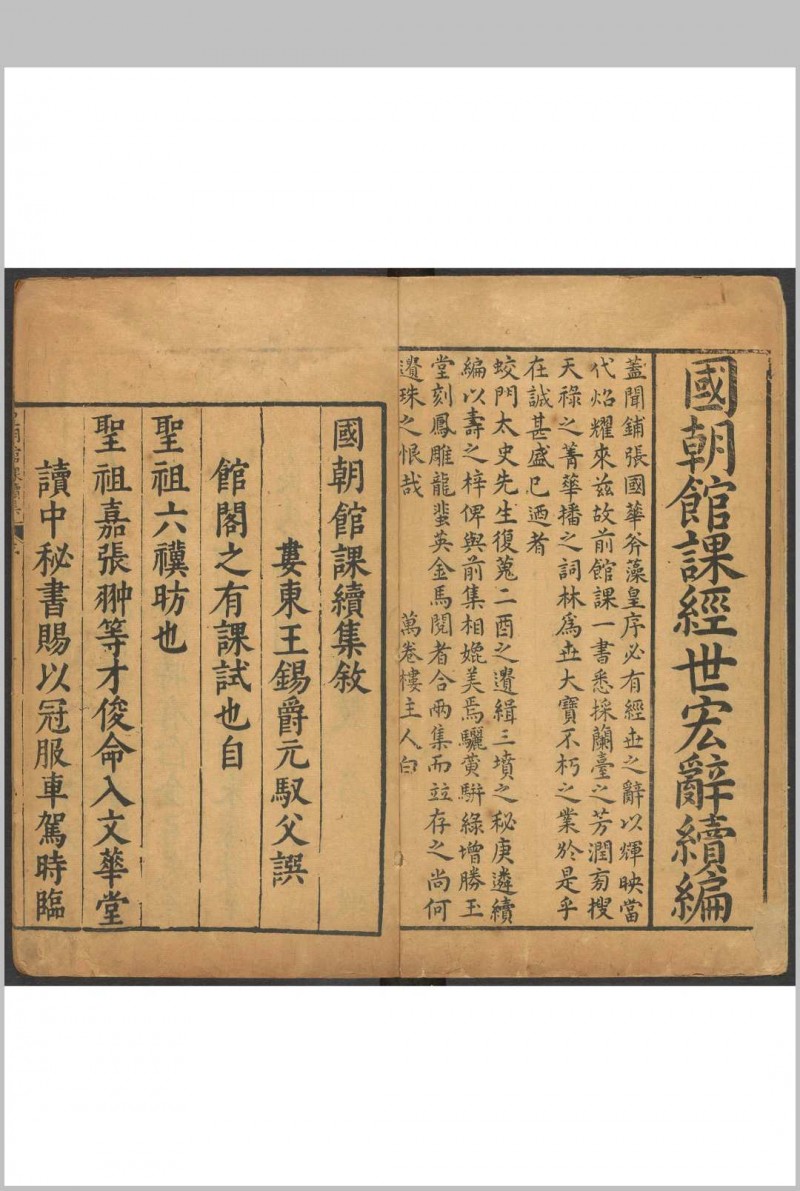 國朝館課經世宏辭續編
蓋聞鋪張國華斧藻皇序必有經世之辭以輝映當
代焰耀來茲故前館課一書悉採蘭臺之芳潤旁搜
天祿之菁華播之詞林爲世大寶不朽之業於是乎
在誠甚盛已迺者
蛟門太史先生復蒐二酉之遺緝三墳之秘庚遴續
編以壽之梓俾與前集相媲美焉驪黃騈綠增勝玉
堂刻鳳雕龍蜚英金馬閱者合兩集而竝存之尚何
遺珠之恨哉 萬卷樓主人白
國朝館課續集敘
婁東王錫爵元馭父譔
館閣之有課試也自
聖祖六禩昉也
聖祖嘉張翀等才俊命入文華堂
讀中秘書賜以冠服車駕時臨